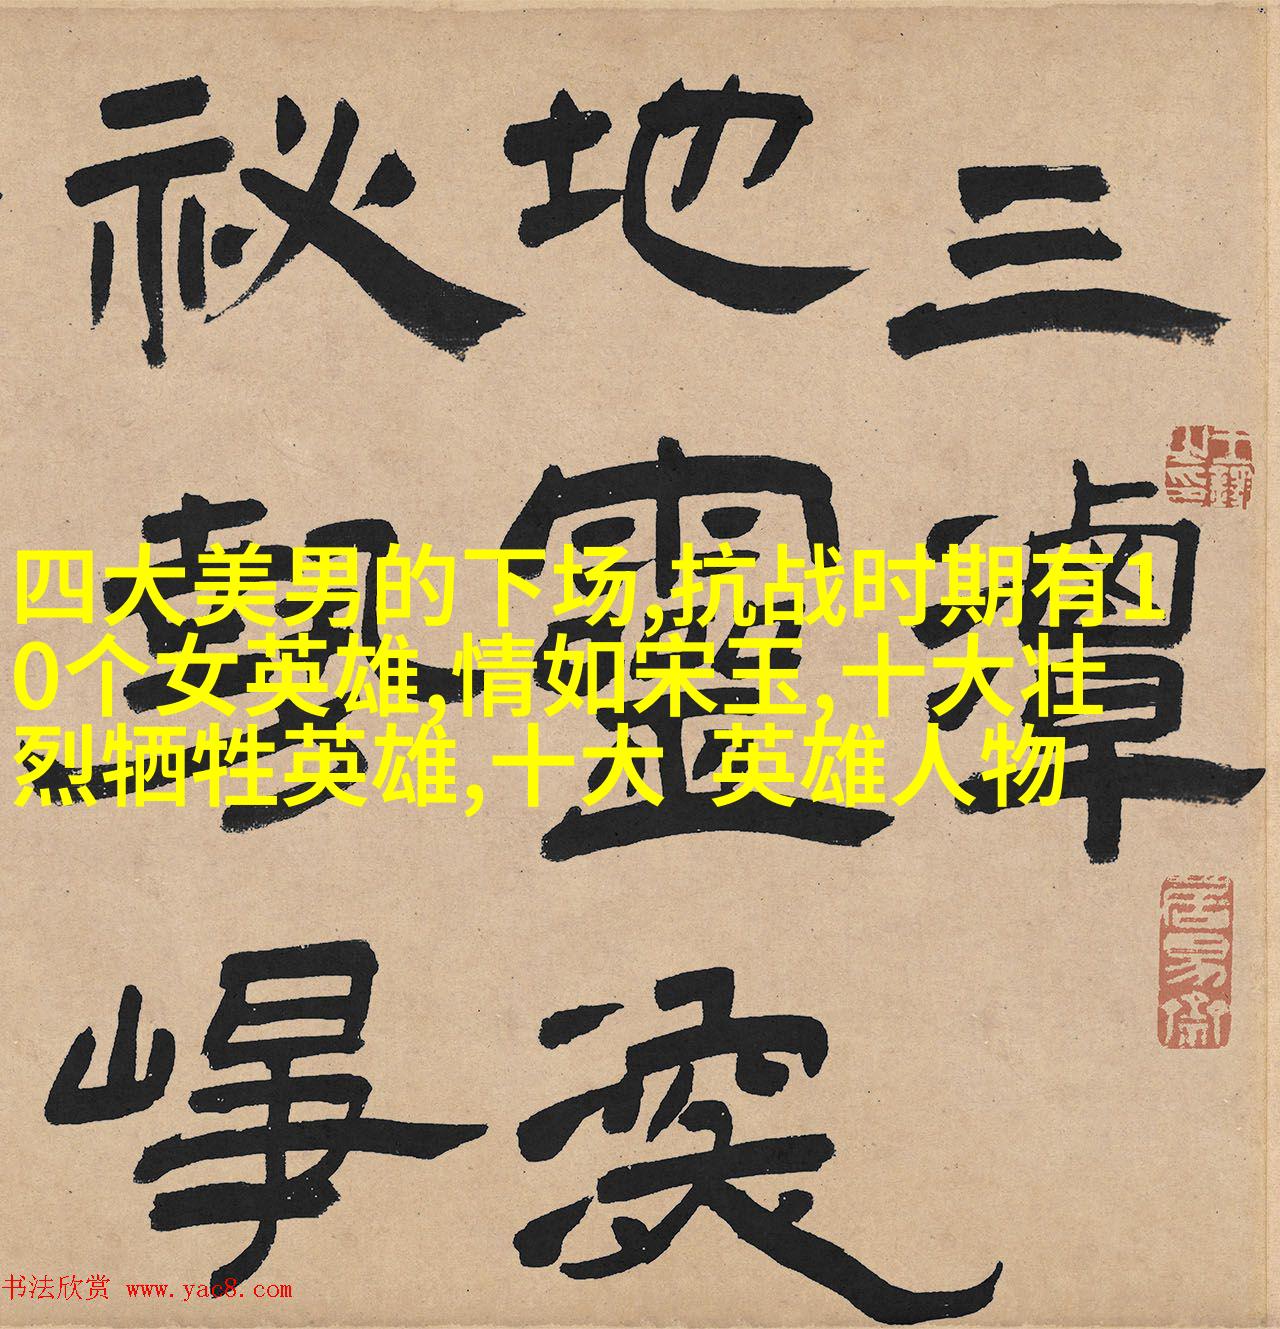 三潭
地靈
秘勢崢
四大美男的下场,抗战时期有1
0个女英雄,情如宋玉,十大壮
烈牺牲英雄,十大 英雄人物
书法欣赏 www.yac8.com